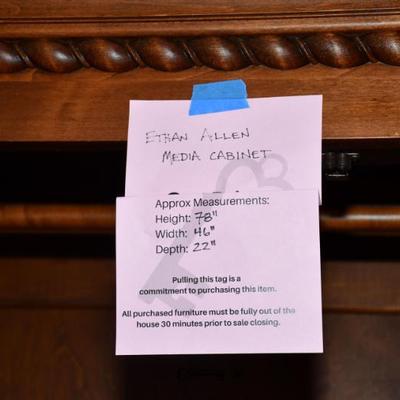 ETHAN ALLEN
MEDIA CABINET
Approx Measurements:
Height: 78"
Width: 46"
Depth: 22"
Pulling this tag is a
commitment to purchasing this item.
All purchased furniture must be fully out of the
house 30 minutes prior to sale closing.